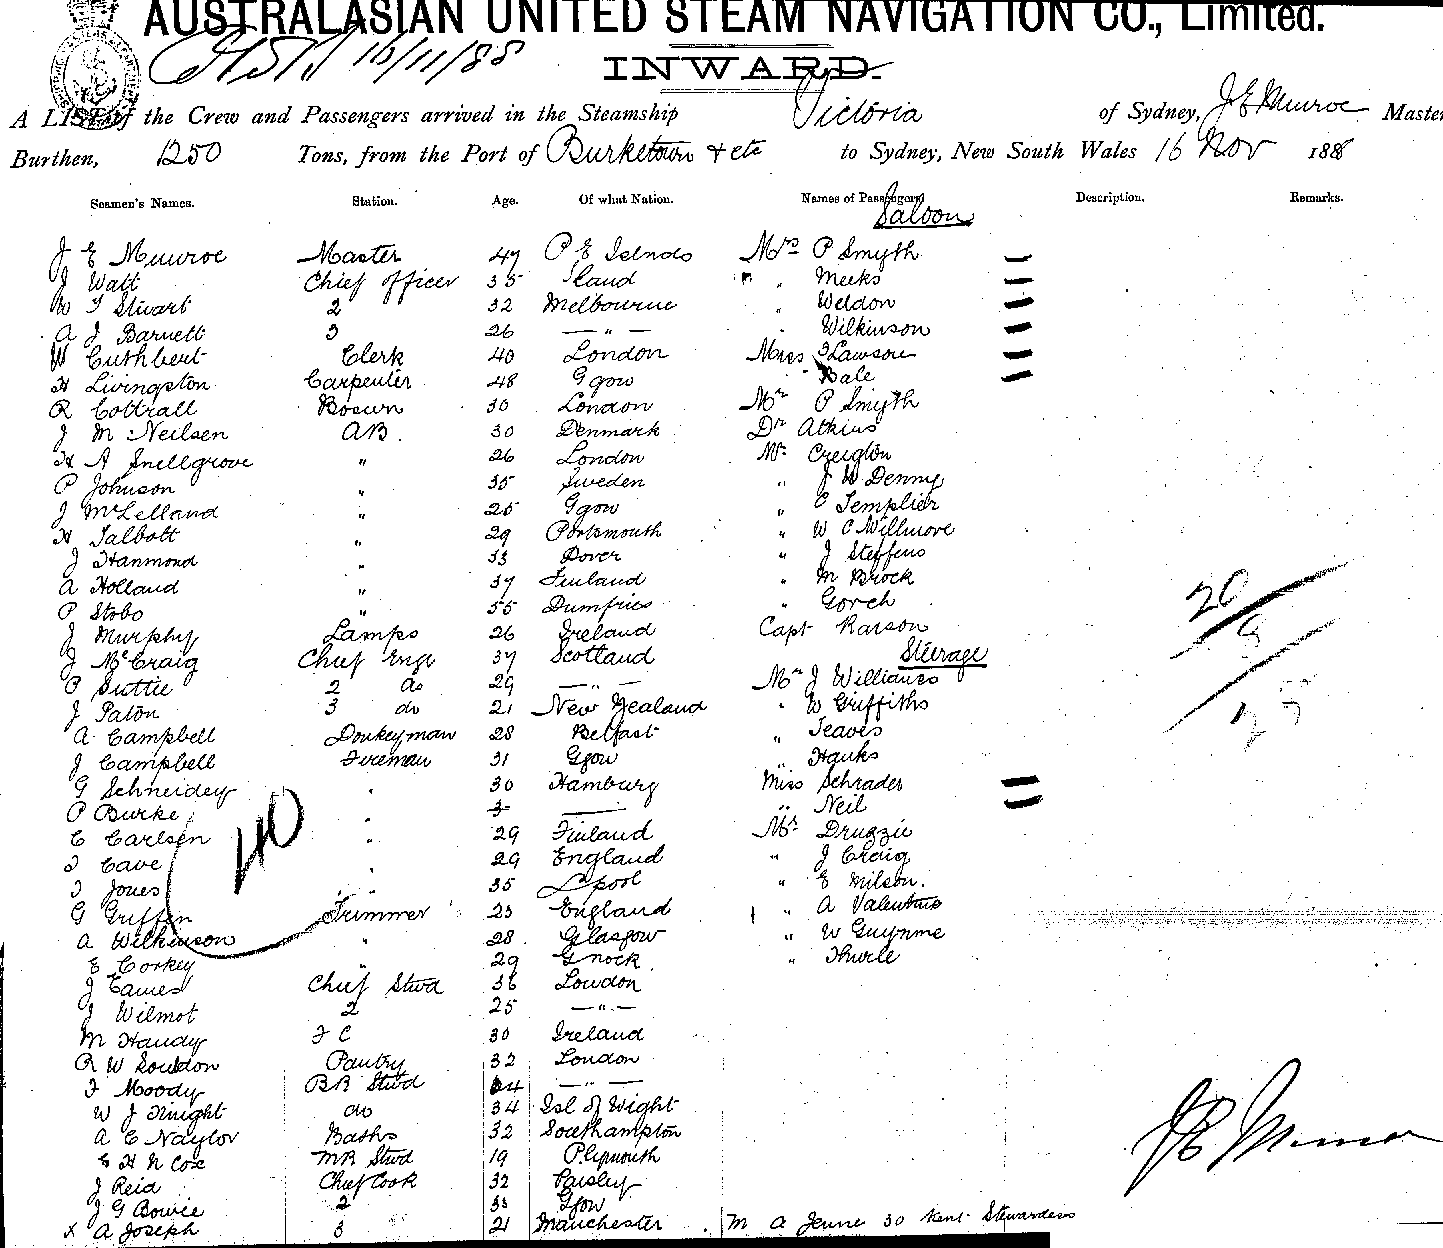 AUSTRALASIAN UNITED STEAM NAVIGATION CO., Limited.
16/11/88
INWARD.
A LIST of the Crew and Passengers arrived in the Steamship Victoria of Sydney, J E Munroe Master
Burthen, 1250 Tons, from the Port of Burketown & etc to Sydney, New South Wales 16 Nov 1888
Seamen's Names. Station. Age. Of what Nation. Names of Passengers Description. Remarks.
Saloon
J E Munroe Master 47 P E Islnds Mrs P Smyth —
J Watt Chief officer 35 " " Meeks —
W T Stuart 2 32 Melbourne " Weldon —
A J Barnett 3 26 — " — " Wilkinson —
W Cuthbert Clerk 40 London Misses Lawson —
H Livingston Carpenter 48 Ggow Bale —
R Cottrall Bosun 30 London Mr P Smyth
J M Neilsen AB. 30 Denmark Dr Atkins
H A Snellgrove " 26 London Mr Creigton
P Johnson " 35 Sweden " J W Denny
J McLelland " 25 Ggow " C Templier
H Talbott " 29 Portsmouth " W C Willmore
J Hanmond " 33 Dover " J Steffens
A Holland " 37 Finland " M Brock
P Stobo " 55 Dumfries " Gorch
J Murphy Lamps 26 Ireland Capt Rawson
J McCraig Chief Engr 37 Scotland Steerage
P Suttie 2 do 29 — " — Mr J Williams
J Paton 3 do 21 New Zealand " W Griffiths
A Campbell Donkeyman 28 Belfast " Teaves
J Campbell Fireman 31 Ggow " Hanks
G Schneidey " 30 Hamburg Miss Schrader =
P Burke " — " Neil =
C Carlsen " 29 Finland Mr Druzzie
T Cave " 29 England " J Craig
T Jones " 35 L'pool " E Milson.
G Griffen Trimmer 23 England " A Valentine
A Wilkinson " 28 Glasgow " W Guynme
E Corkey " 29 Gnock " Thurle
J Eames Chief Stwd 36 London
J Wilmot 2 25 — " —
M Handy F C 30 Ireland
R W Souldon Pantry 32 London
F Moody BR Stwd 24 — " —
W J Knight do 34 Isl of Wight
A E Naylor Baths 32 Southampton
E H N Cox MR Stwd 19 Plymouth
J Reid Chief Cook 32 Paisley
J G Bowie 2 33 Ggow
x A Joseph 3 21 Manchester M A Jenne 30 Kent Stewardess
40
20
8
J E Munroe